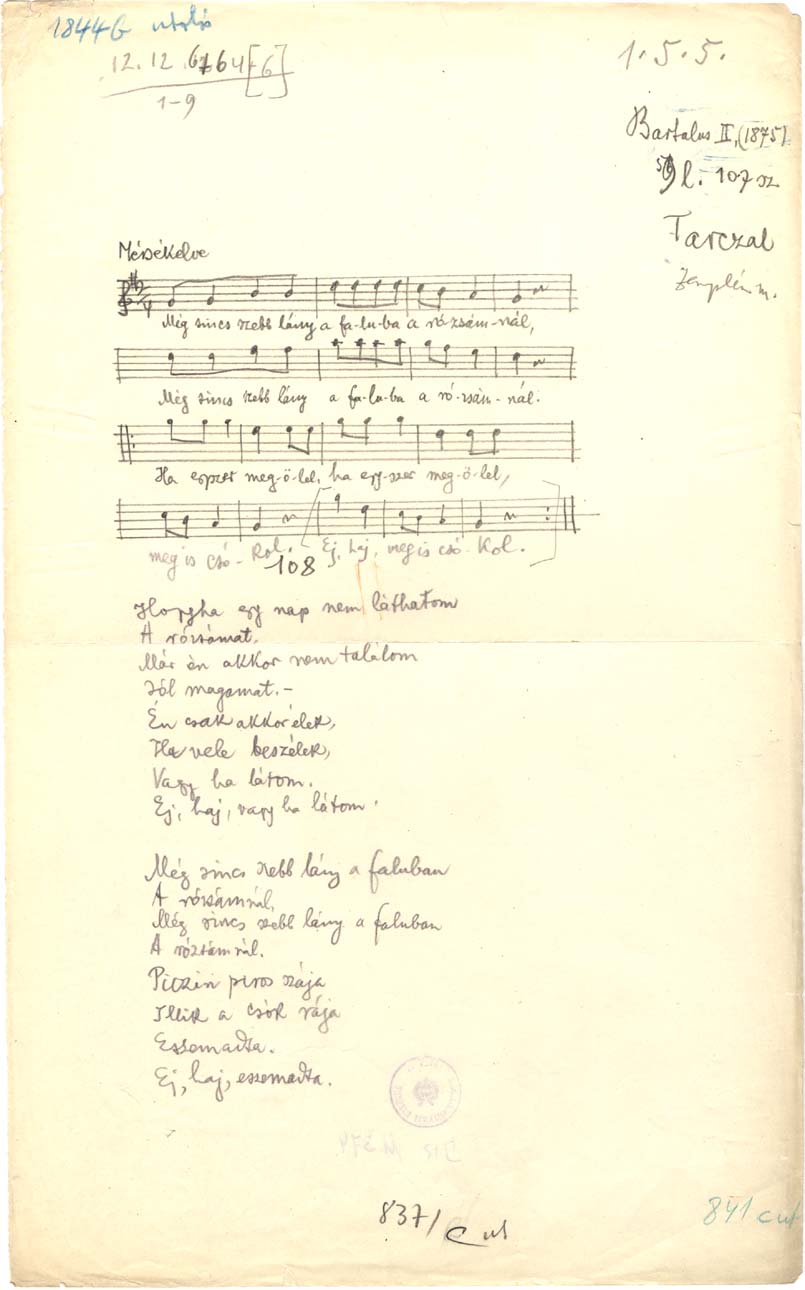 1844 G utolsó
12.12.6764[6]
1-9
1.5.5.
Bartalus II, (1875)
59 l. 107 sz
Tarczal
Zemplén m.
Mérsékelve
Még sincs szebb lány a fa-lu-ba a ró-zsám-nál,
Még sincs szebb lány a fa-lu-ba a ró-zsám-nál.
Ha egyszer meg-ö-lel, ha egy-szer meg-ö-lel,
meg is csó-kol. Ej, haj, meg is csó-kol.
108
Hogyha egy nap nem láthatom
A rózsámat.
Már én akkor nem találom
Jól magamat.-
Én csak akkor élek,
Ha vele beszélek,
Vagy ha látom.
Ej, haj, vagy ha látom.
Még sincs szebb lány a faluban
A rózsámnál,
Még sincs szebb lány a faluban
A rózsámnál.
Piczin piros szája
Illik a csók rája
Esszemadta.
Ej, haj, esszemadta.
837/
841